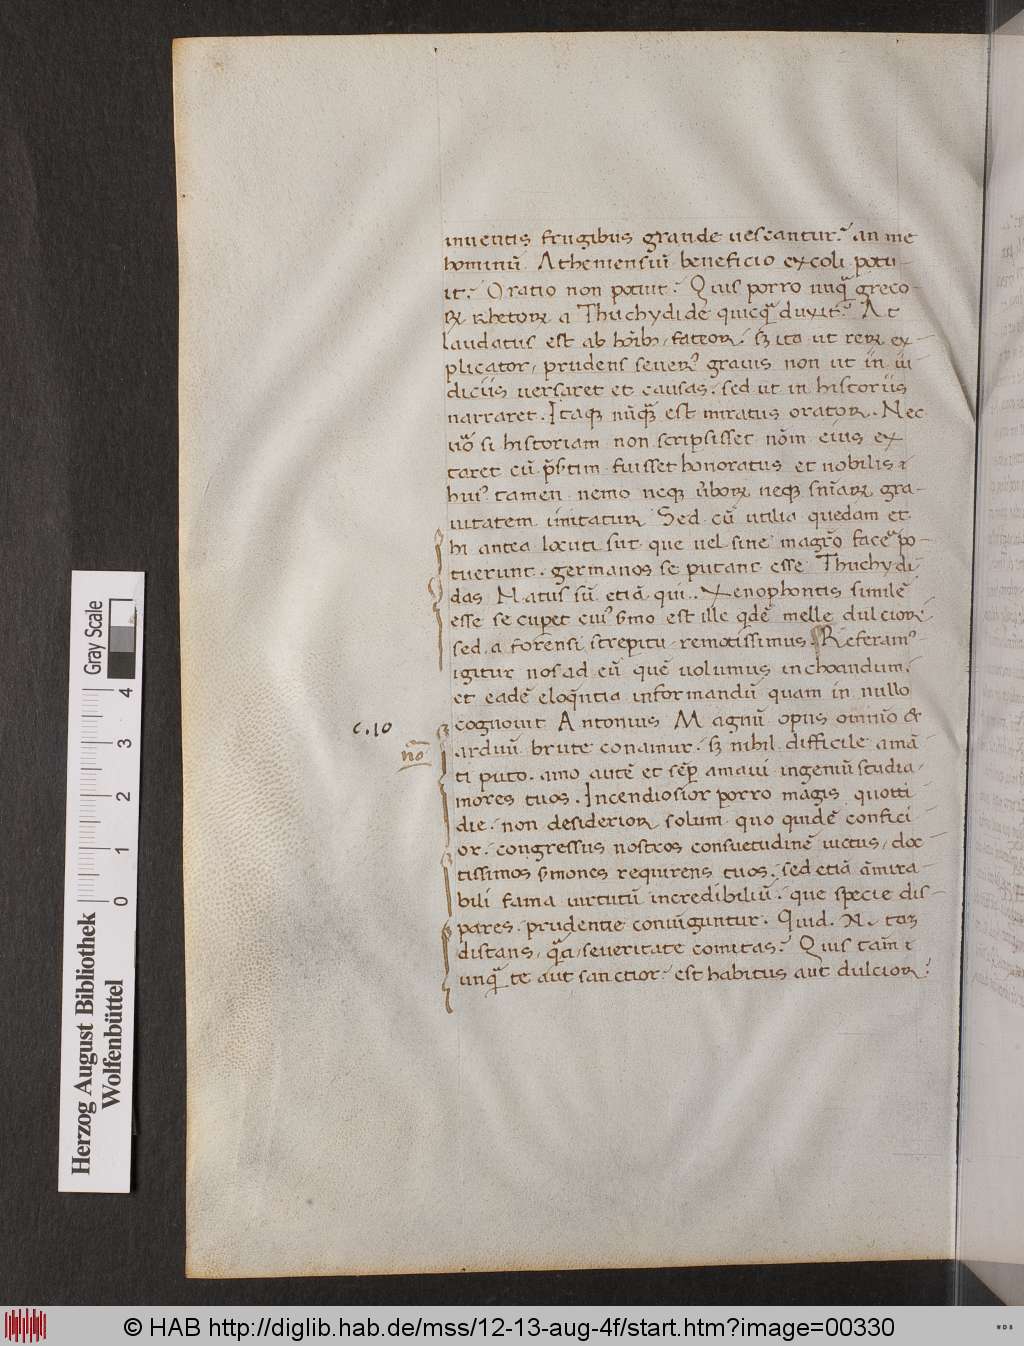 inuentis frugibus grande uescantur? an me
hominũ Atheniensiũ beneficio excoli potu-
it? Oratio non potuit? Quis porro unq̃ greco-
ꝝ rhetoꝝ a Thuchydide quicq̃ duxit? At
laudatus est ab hoĩbꝰ, fateor. sꝫ ita ut reꝝ ex-
plicator, prudens seuerꝰ grauis non ut in iu
diciis uersaret et causas. sed ut in historiis
narraret. Itaqꝫ nũq̃ est miratus orator. Nec
uõ si historiam non scripsisset nõm eius ex
taret cũ p̃s̃tim fuisset honoratus et nobilis
huiꝰ tamen nemo neqꝫ ũboꝝ neqꝫ sñiaꝝ gra-
uitatem imitatur Sed cũ utilia quedam et
hi antea locuti sũt que uel sine magr̃o facẽ po-
tuerunt. germanos se putant esse Thuchydi
das Natus sũ etiã qui. Xenophontis similẽ
esse se cuperet eiꝰ s̃mo est ille qdẽ melle dulcior
sed a forensi strepitu remotissimus. Referamꝰ
igitur nos ad eũ quẽ uolumus inchoandum.
et eadẽ eloq̃ntia informandũ quam in nullo
cognouit Antonius Magnũ opus omnino &
arduũ brute conamur. sꝫ nihil difficile amã
ti puto. amo autẽ et sẽp amaui ingeniũ studia
mores tuos. Incendiosior porro magis quotti
die. non desiderior solum quo quidẽ confici
or. congressus nostros consuetudinẽ uictus, doc
tissimos s̃mones requirens tuos. sed etiã ãmira-
bili fama uirtutũ incredibiliũ. que specie dis-
pares. prudentie coniũguntur. Quid. N. taꝫ
distans, q̃ a seueritate comitas? Quis tam̃
unq̃ te aut sanctior? est habitus aut dulcior?
c. 10
nõ
Herzog August Bibliothek
Wolfenbüttel
Gray Scale
0 1 2 3 4
© HAB http://diglib.hab.de/mss/12-13-aug-4f/start.htm?image=00330